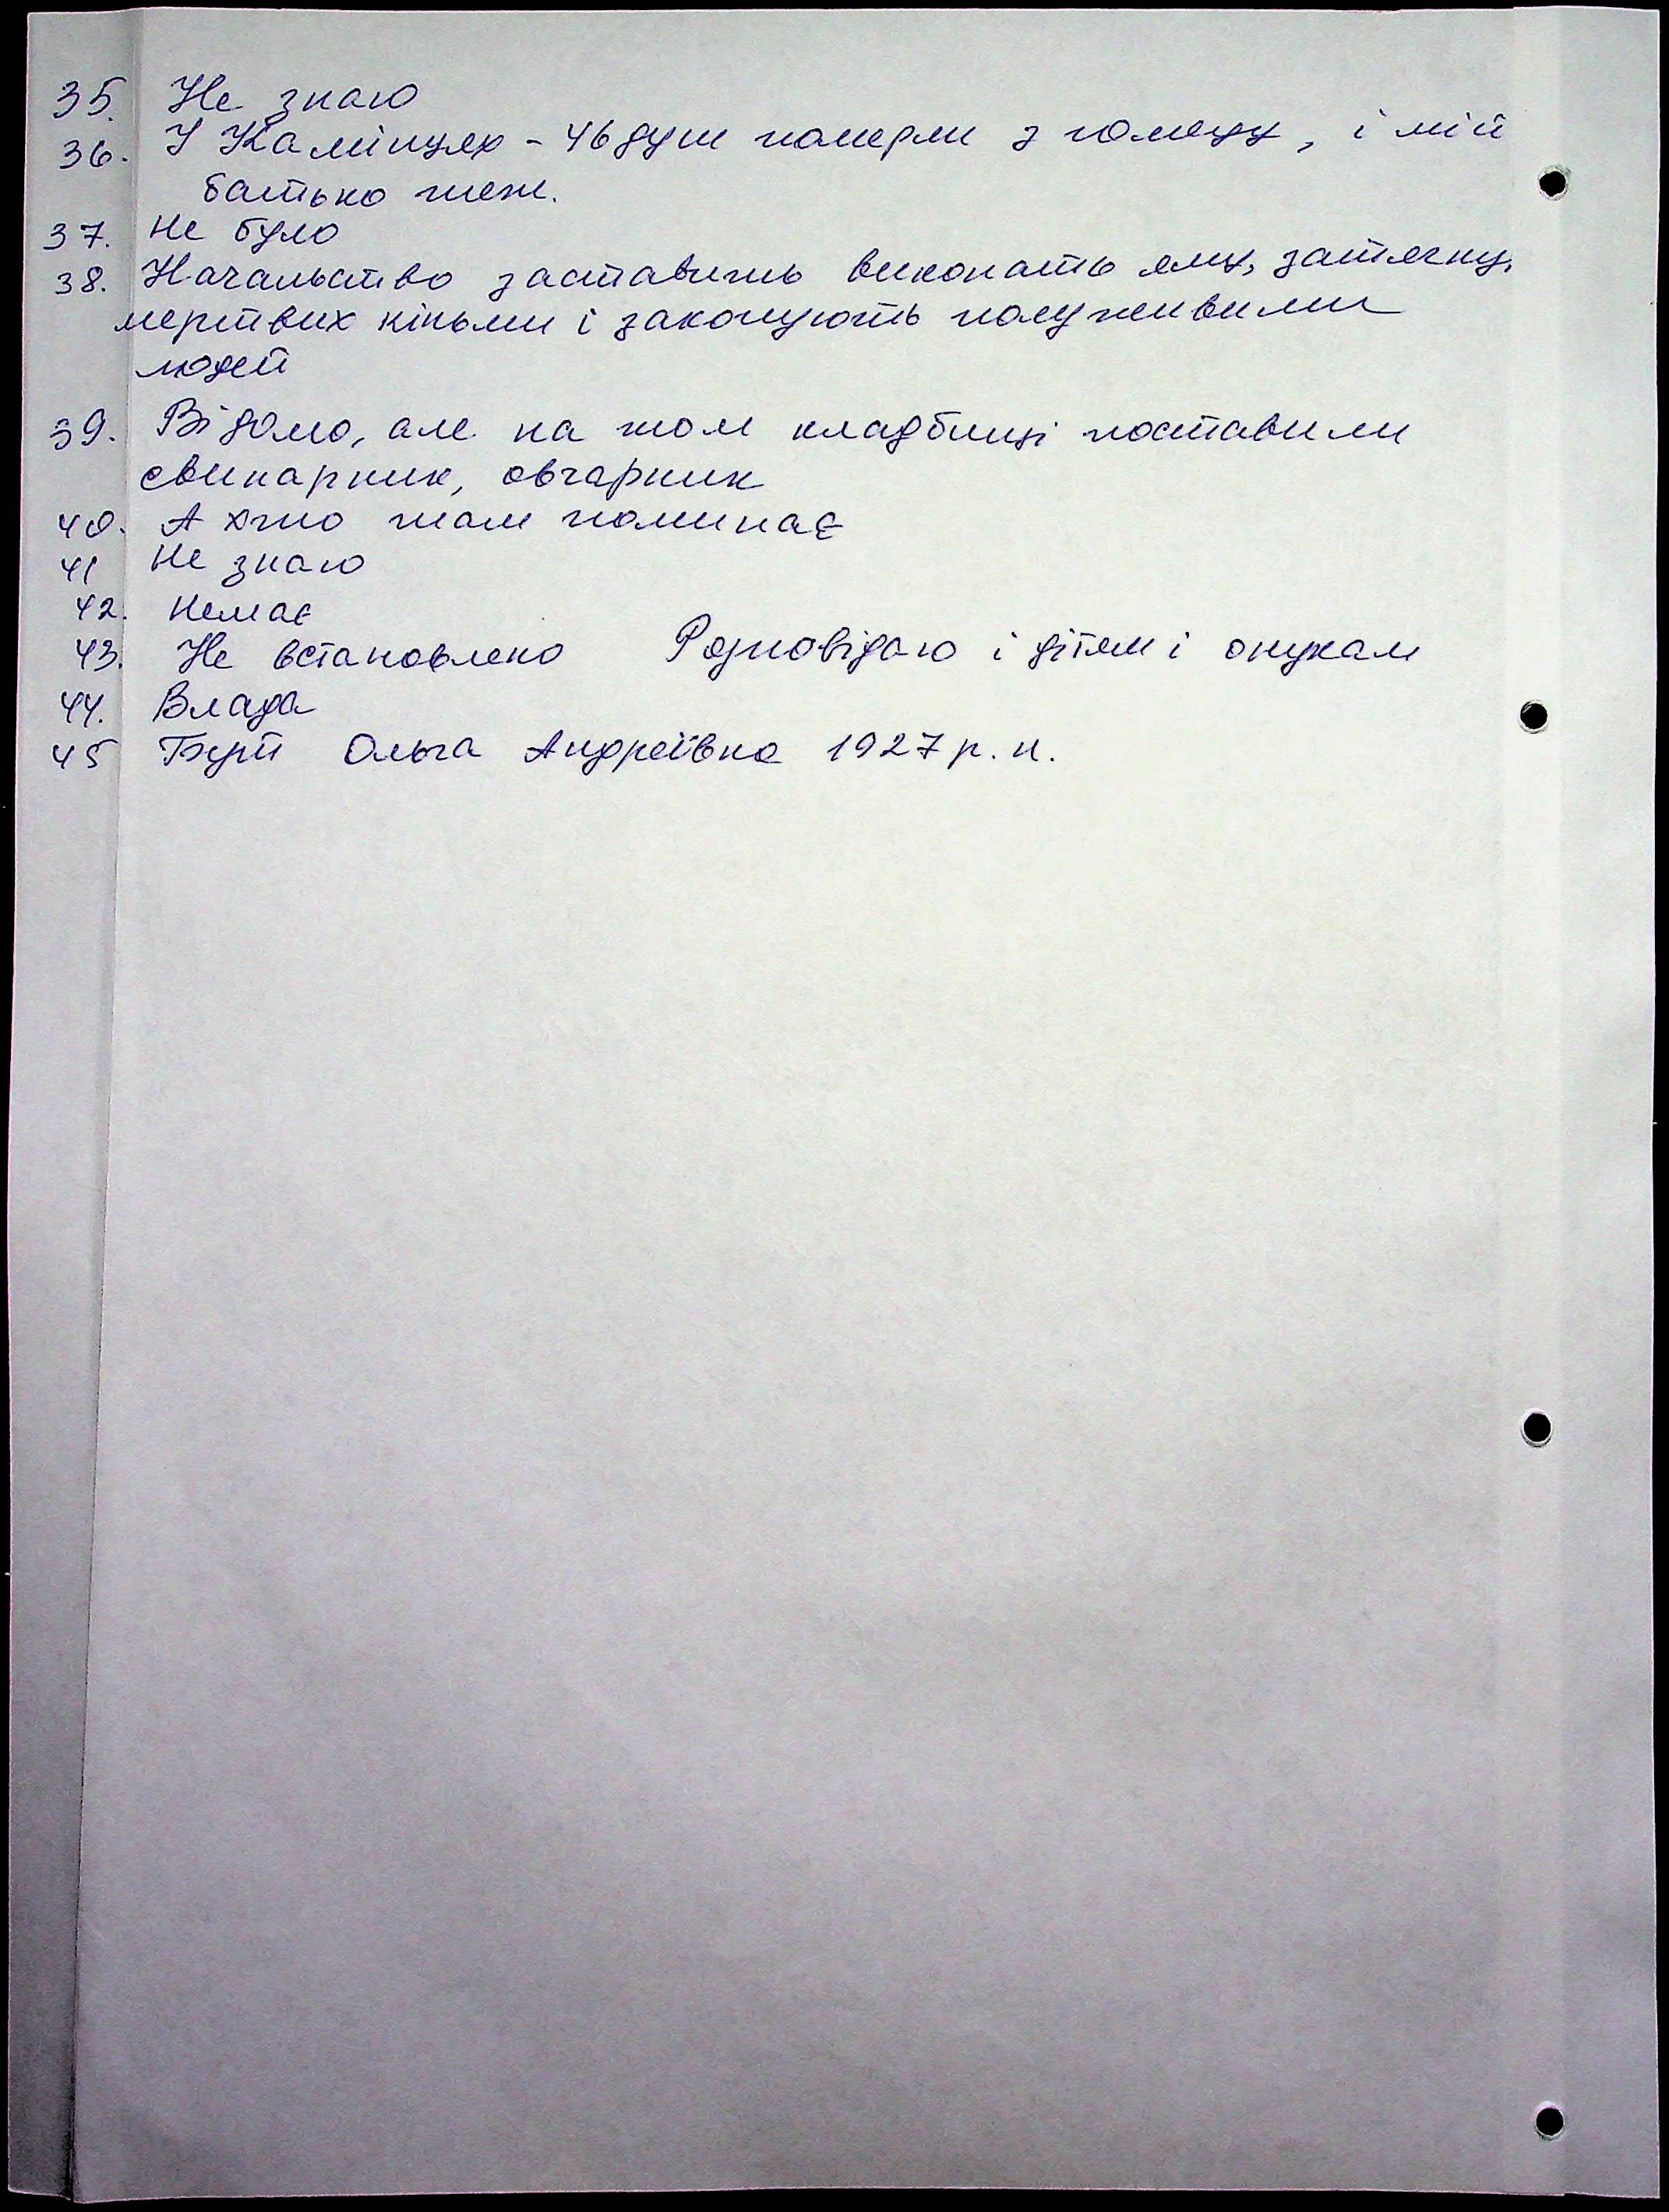 35. Не знаю
36. У Камінцях - 46 душ померли з голоду, і мій
батько теж.
37. Не було
38. Начальство заставить виконать яму, затягну,
мертвих кіньми і закопують полуживими
людей
39. Відомо, але на том кладбищі поставили
свинарник, овчарник
40. А хто там поминає
41 Не знаю
42. Немає
43. Не встановлено Розповідаю і дітям і онукам
44. Влада
45 Ольга Андреївна 1927 р. н.